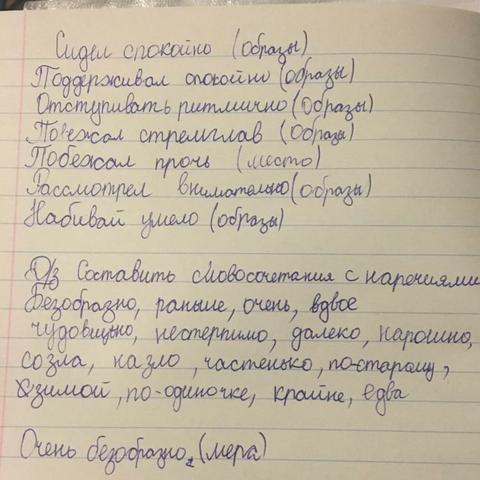 Сидел спокойно (образы)
Поддерживал спокойно (образы)
Отступивать ритмично (образы)
Побежал стремглав (образы)
Побежал прочь (место)
Рассмотрел внимательно (образы)
Набивай умело (образы)
Д/з Составить словосочетания с наречиями
Безобразно, раньше, очень, вдвое
чудовищьно, нестерпимо, далеко, нарошно,
созла, назло, частенько, по-старому,
зимой, по-одиночке, крайне, едва
Очень безобразно (мера)